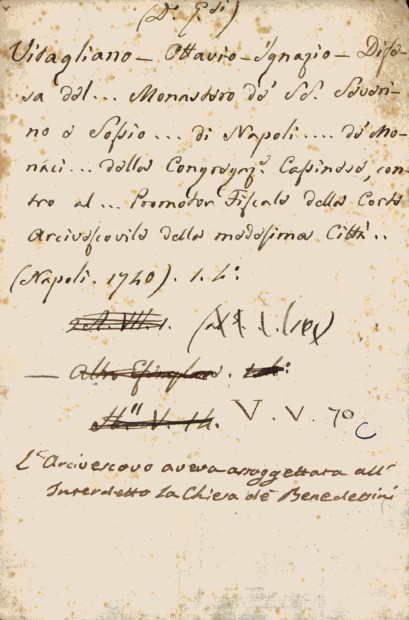 Vitagliano – Ottavio – Ignazio – Dife-
sa del... Monastero de' SS. Severi-
no e Sossio... di Napoli.... de' Mo-
naci... della Congregaz.e Casinese, con-
tro al... Promotor Fiscale della Corte
Arcivescovile della medesima Città..
(Napoli. 1740). 1. 4.º
A. VII. 1.
— Altro Esemplare.
V. V. 70
L'Arcivescovo aveva assoggettata all'
Interdetto la Chiesa de' Benedettini